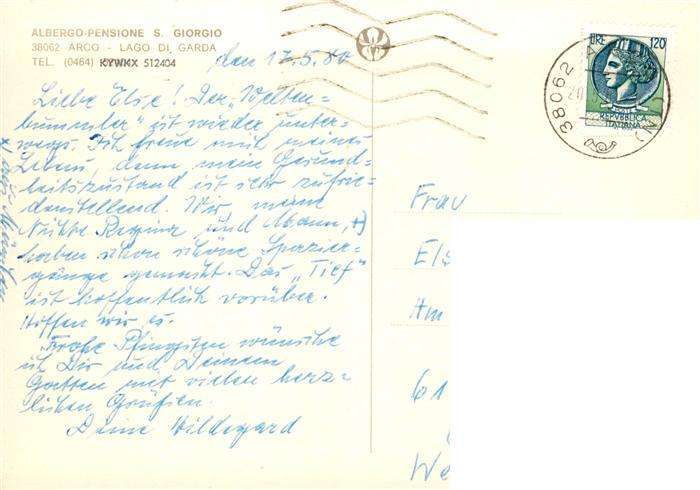 ALBERGO-PENSIONE S. GIORGIO
38062 ARCO - LAGO DI GARDA
TEL. (0464) 512404
den 17.5.80
Liebe Else! Der "Welten-
bummler" ist wieder unter-
wegs. Ich freue mich meines
Lebens, denn mein Gesund-
heitszustand ist sehr zufrie-
denstellend. Wir, meine
Nichte Regina und Mann, +)
haben schon schöne Spazier-
gänge gemacht. Das "Tief"
ist hoffentlich vorüber.
Hoffen wir es.
Frohe Pfingsten wünsche
ich Dir und Deinem
Gatten mit vielen herz-
lichen Grüßen.
Deine Hildegard
LIRE 120
REPVBBLICA
ITALIANA
38062
Frau
Els
Am
61
We